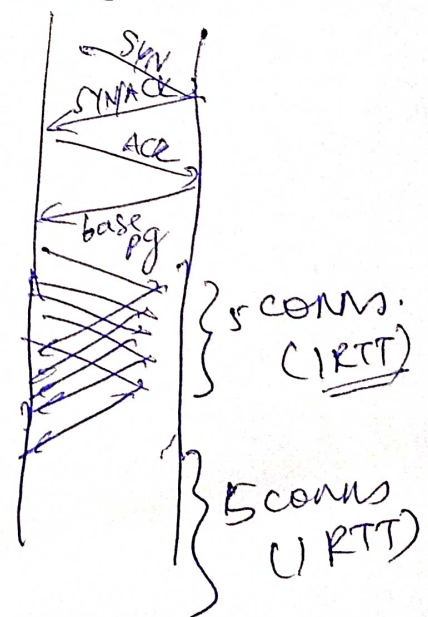 SYN
SYN/ACK
ACK
base
pg
5 conns.
(1RTT)
5 conns
(1 RTT)